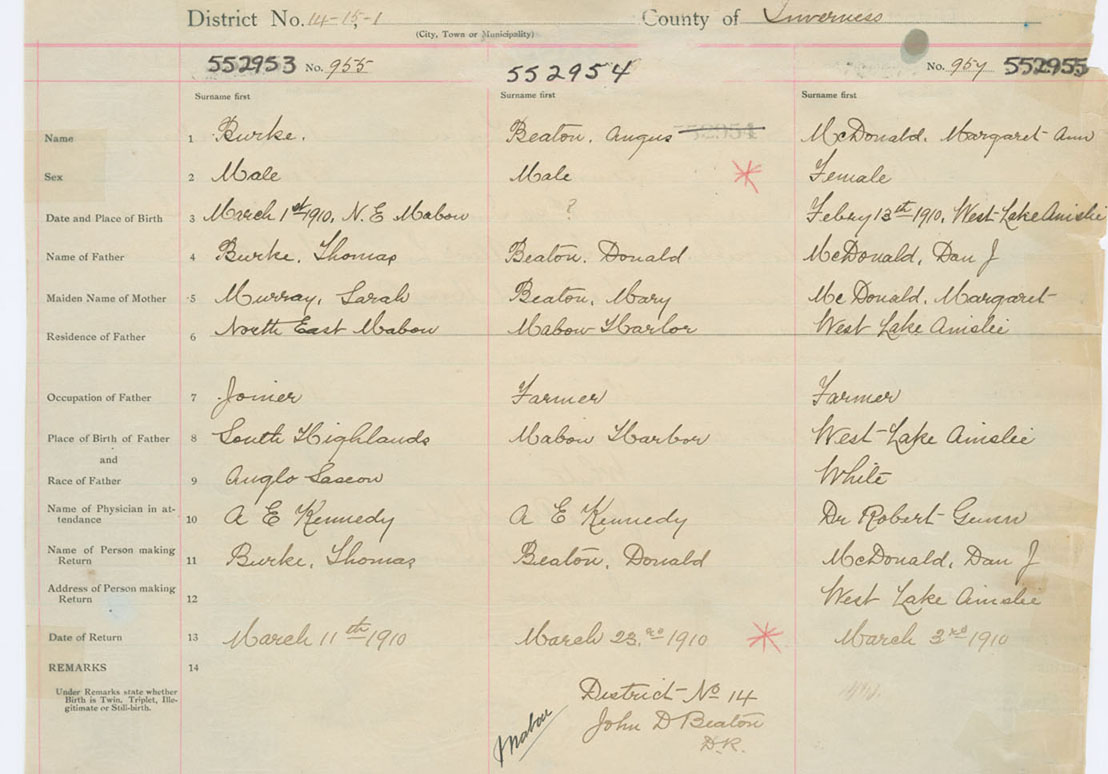 District No. 14-15-1 County of Inverness
(City, Town or Municipality)
552953 No. 955 552954 No. 957 552955
Surname first Surname first Surname first
Name 1 Burke. Beaton, Angus 552954 McDonald, Margaret Ann
Sex 2 Male Male Female
Date and Place of Birth 3 March 1st 1910, N. E Mabou ? Febry 13th 1910, West Lake Ainslie
Name of Father 4 Burke, Thomas Beaton, Donald McDonald, Dan J
Maiden Name of Mother 5 Murray, Sarah Beaton, Mary McDonald, Margaret
Residence of Father 6 North East Mabou Mabou Harbor West Lake Ainslie
Occupation of Father 7 Joiner Farmer Farmer
Place of Birth of Father 8 South Highlands Mabou Harbor West Lake Ainslie
and
Race of Father 9 Anglo Saxon White
Name of Physician in at-
tendance 10 A E Kennedy A E Kennedy Dr Robert Gunn
Name of Person making
Return 11 Burke, Thomas Beaton, Donald McDonald, Dan J
Address of Person making
Return 12 West Lake Ainslie
Date of Return 13 March 11th 1910 March 23.rd 1910 March 3rd 1910
REMARKS 14
Under Remarks state whether
Birth is Twin, Triplet, Ille-
gitimate or Still-birth.
District No 14
John D Beaton
D.R.
Mabou